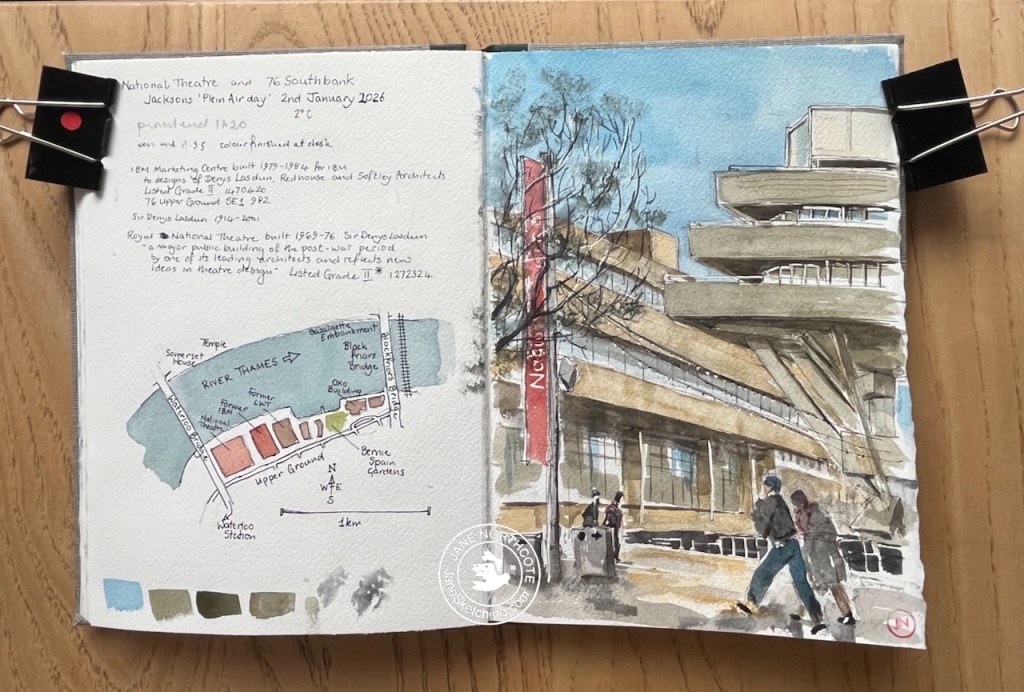 National Theatre and 76 Southbank
Jacksons 'Plein Air day' 2nd January 2026
2°C
colour finished at desk
IBM Marketing Centre built 1979-1984 for IBM
to designs of Denys Lasdun, Redhouse and Softley Architects
Listed Grade II 1470420
76 Upper Ground SE1 9PZ
Sir Denys Lasdun 1914-2001
Royal National Theatre built 1969-76 Sir Denys Lasdun
"a major public building of the post-war period
by one of its leading architects and reflects new
ideas in theatre design" Listed Grade II* 1272324
Temple
Somerset
House
Bazalgette
Embankment
Black
friars
Bridge
Blackfriars Bridge
RIVER THAMES
Oxo
Building
Former
LWT
Former
IBM
National
Theatre
Waterloo Bridge
Upper Ground
Bernie
Spain
Gardens
N
W E
S
1km
Waterloo
Station
JANE NORTHCOTE
JaneSketching.com
JN